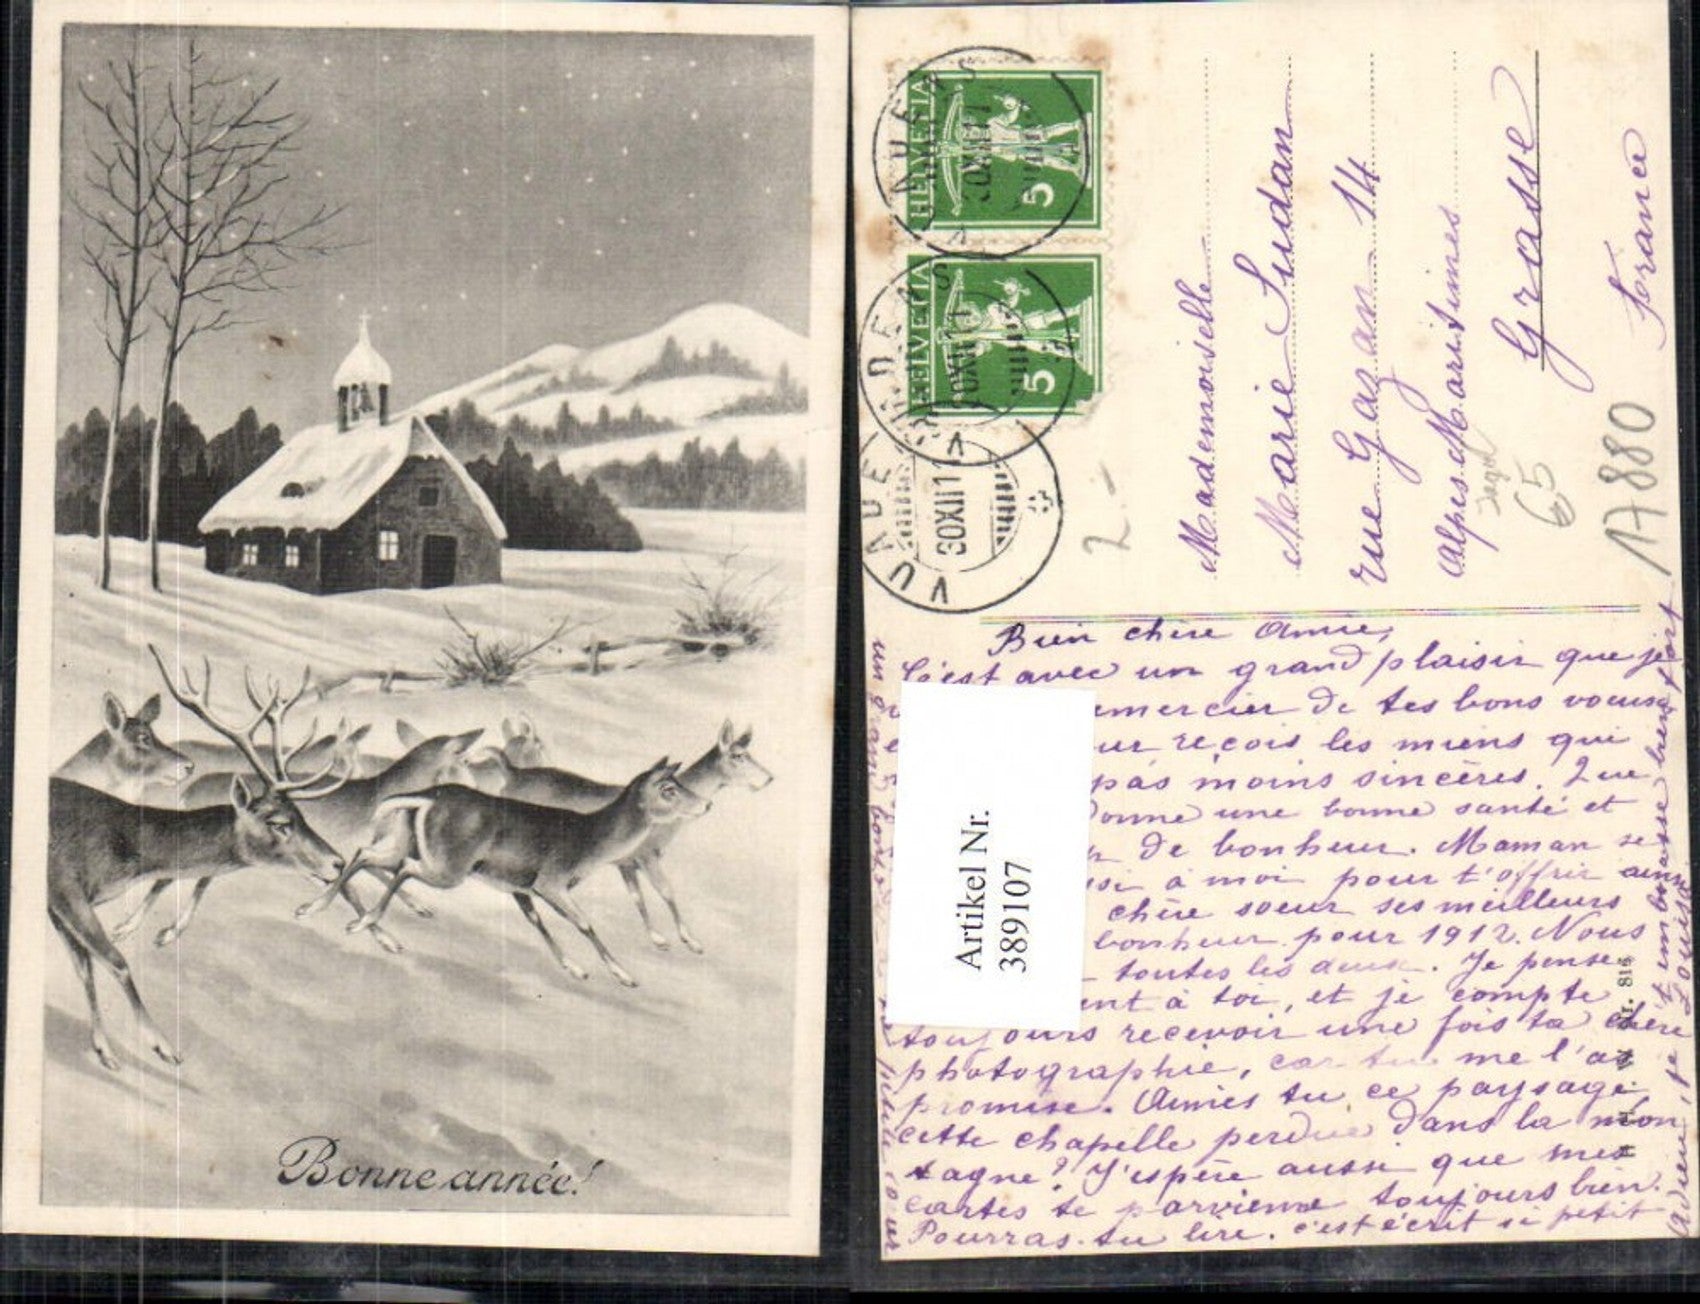 Bonne année!
HELVETIA
5
HELVETIA
5
VUADENS
30XII11
VUADENS
30XII11
VUADENS
30XII11
Mademoiselle
Marie Sudan
rue Gazan 14
Alpes-Maritimes
Grasse
France
2.-
65
17880
Artikel Nr.
389107
Bien chère Amie,
C'est avec un grand plaisir que je
emercier de tes bons voeux
ur reçois les miens qui
pas moins sincères. Que
donne une bonne santé et
de bonheur. Maman se
ssi à moi pour t'offrir ainsi
chère soeur ses meilleurs
bonheur pour 1912. Nous
toutes les deux. Je pense
ent à toi, et je compte
toujours recevoir une fois ta chère
photographie, car tu me l'as
promise. Aimes tu ce paysage
cette chapelle perdue dans la mon
tagne? J'espère aussi que mes
cartes te parvienne toujours bien.
Pourras-tu lire. c'est écrit si petit
Adieu, je t'embrasse bien fort
Louise
Nr. 815